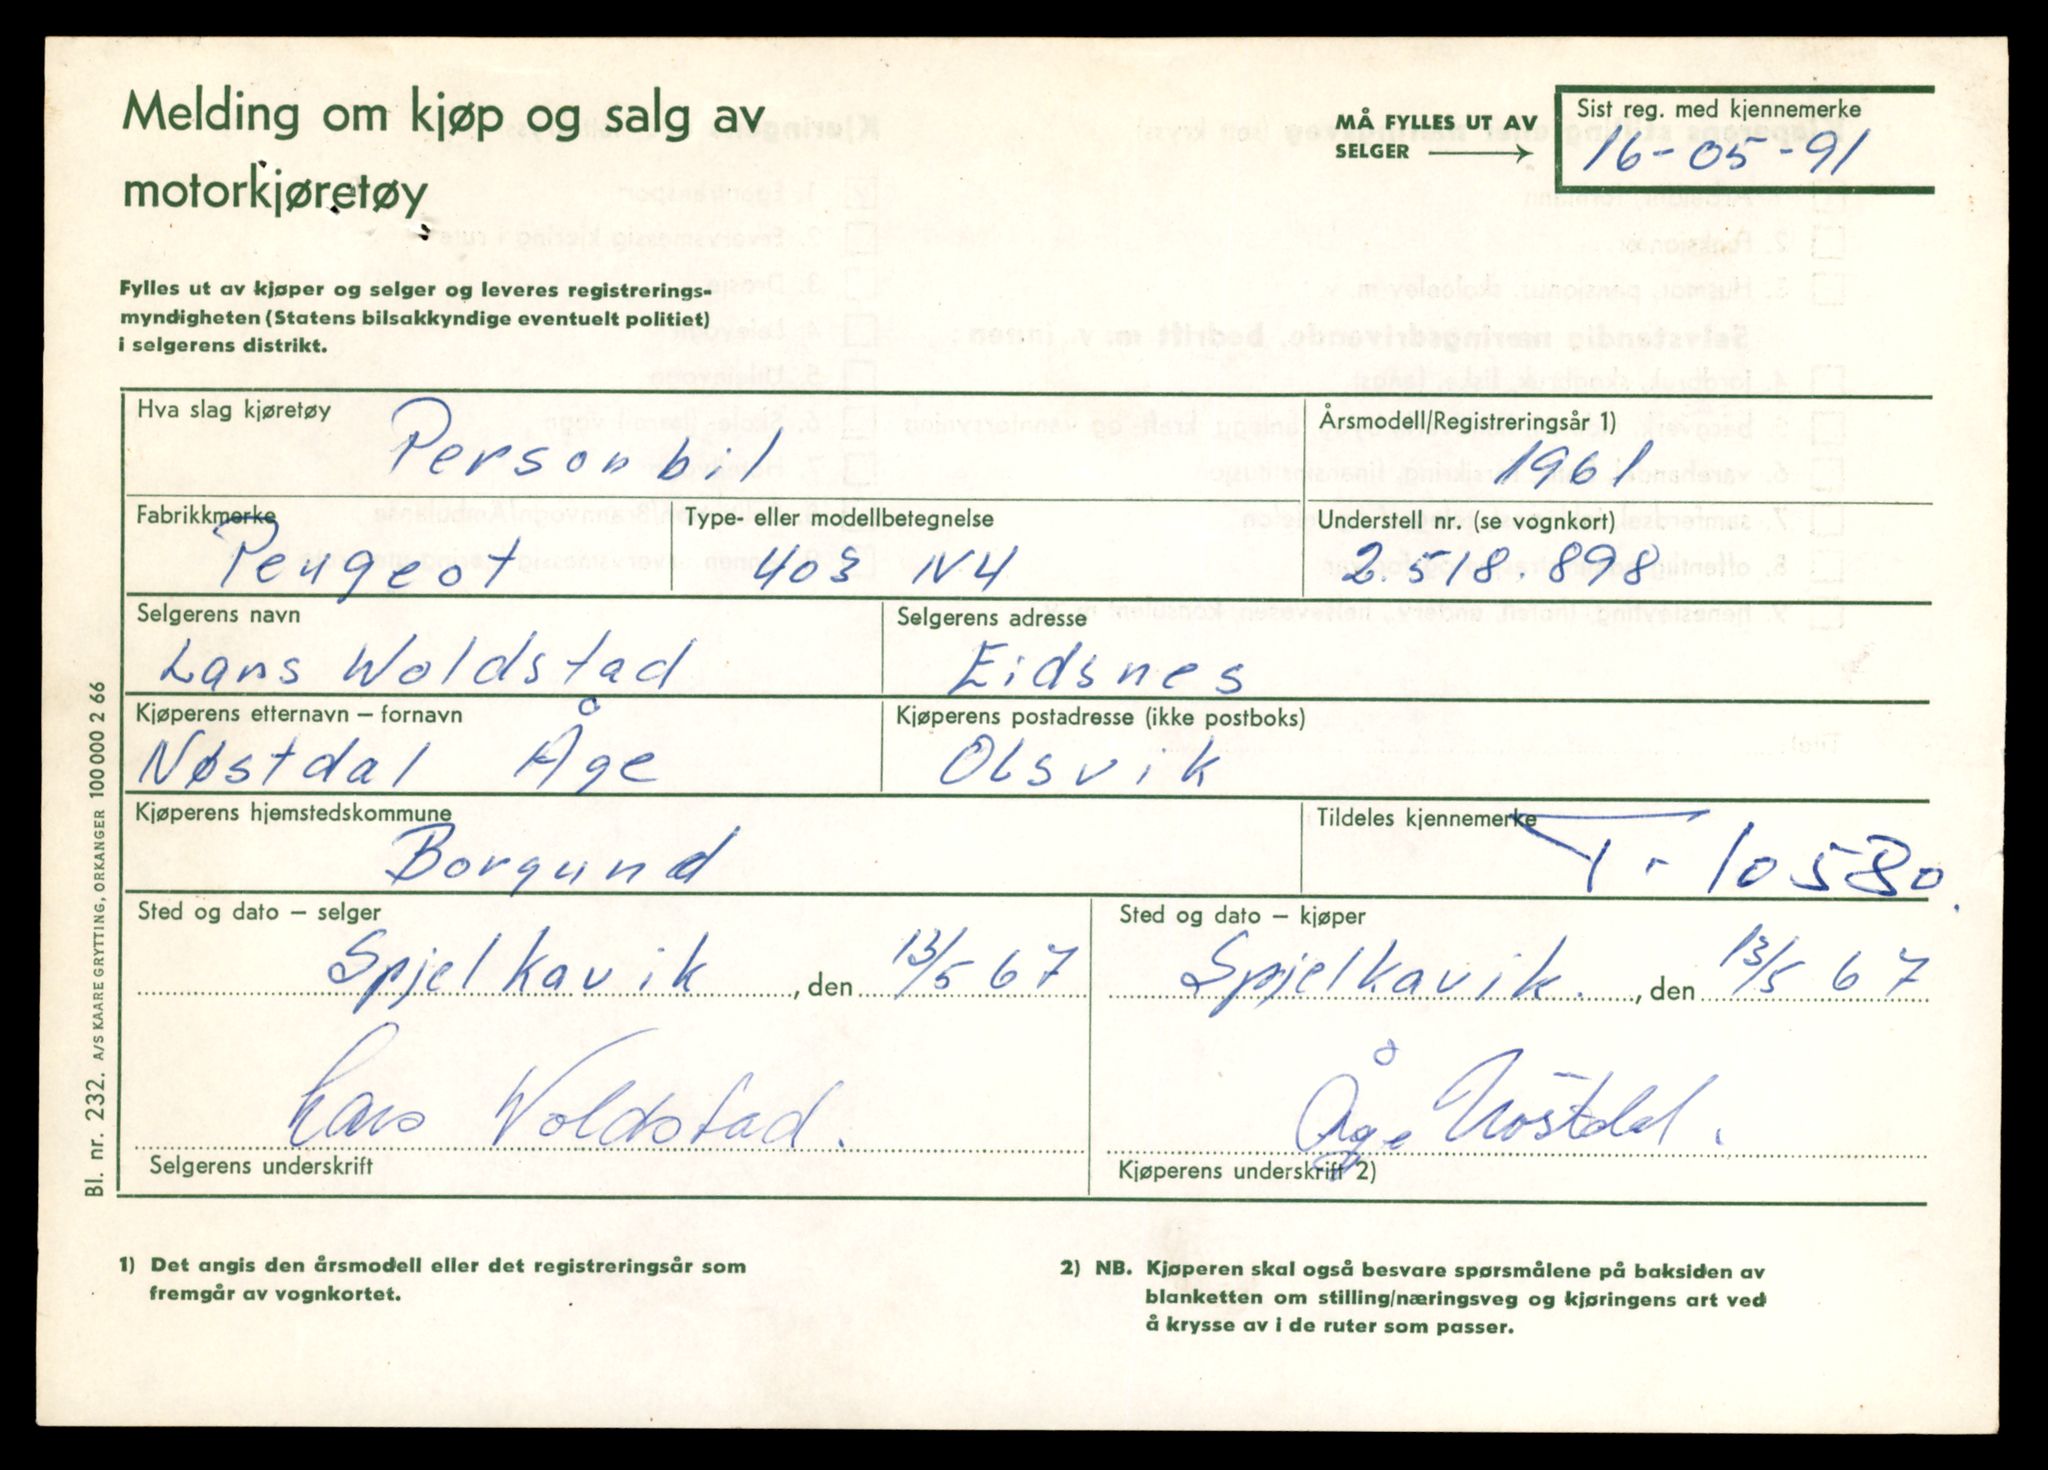 Melding om kjøp og salg av
motorkjøretøy
MÅ FYLLES UT AV
SELGER
Sist reg. med kjennemerke
16-05-91
Fylles ut av kjøper og selger og leveres registrerings-
myndigheten (Statens bilsakkyndige eventuelt politiet)
i selgerens distrikt.
Hva slag kjøretøy
Personbil
Årsmodell/Registreringsår 1)
1961
Fabrikkmerke
Peugeot
Type- eller modellbetegnelse
403 N4
Understell nr. (se vognkort)
2.518.898
Selgerens navn
Lars Woldstad
Selgerens adresse
Eidsnes
Kjøperens etternavn – fornavn
Nøstdal Åge
Kjøperens postadresse (ikke postboks)
Olsvik
Kjøperens hjemstedskommune
Borgund
Tildeles kjennemerke
T-10580.
Sted og dato – selger
Spjelkavik, den 13/5 67
Sted og dato – kjøper
Spjelkavik., den 13/5 67
Lars Woldstad.
Selgerens underskrift
Åge Nöstdal.
Kjøperens underskrift 2)
1) Det angis den årsmodell eller det registreringsår som
fremgår av vognkortet.
2) NB. Kjøperen skal også besvare spørsmålene på baksiden av
blanketten om stilling/næringsveg og kjøringens art ved
å krysse av i de ruter som passer.
Bl. nr. 232. A/S KAARE GRYTTING, ORKANGER 100 000 2 66